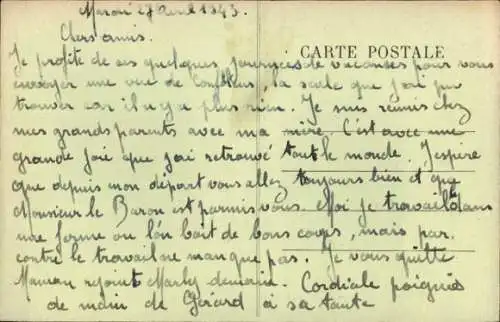 Mardi 27 avril 1943.
Chers amis.
CARTE POSTALE
Je profite de ses quelques journées de vacances pour vous
envoyer une vue de Conflens, la seule que j'ai pu
trouver car il n'y a plus rien. Je suis réunis chez
mes grands parents avec ma mère. C'est avec une
grande joie que j'ai retrouvé tout le monde. J'espère
que depuis mon départ vous allez toujours bien et que
Monsieur le Baron est parmis vous. Moi je travaille dans
une ferme ou l'on boit de bons coups, mais par
contre le travail ne manque pas. Je vous quitte
Maman rejoint Marly demain. Cordiale poignés
de main de Gérard à sa tante